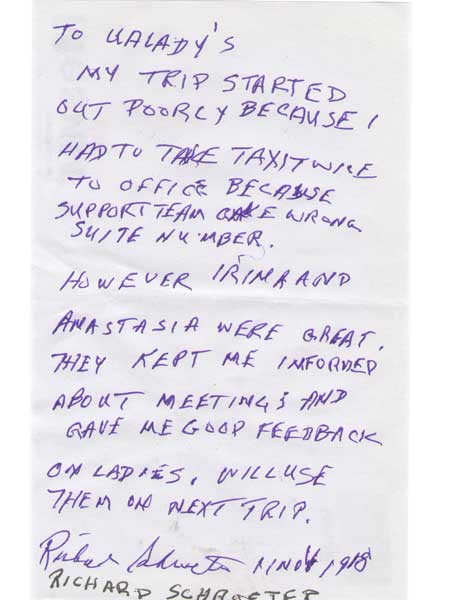 TO UALADY'S
MY TRIP STARTED
OUT POORLY BECAUSE I
HAD TO TAKE TAXIS TWICE
TO OFFICE BECAUSE
SUPPORT TEAM GAVE WRONG
SUITE NUMBER.
HOWEVER IRINA AND
ANASTASIA WERE GREAT.
THEY KEPT ME INFORMED
ABOUT MEETINGS AND
GAVE ME GOOD FEEDBACK
ON LADIES. WILL USE
THEM ON NEXT TRIP.
11 NOV
RICHARD SCHROETER